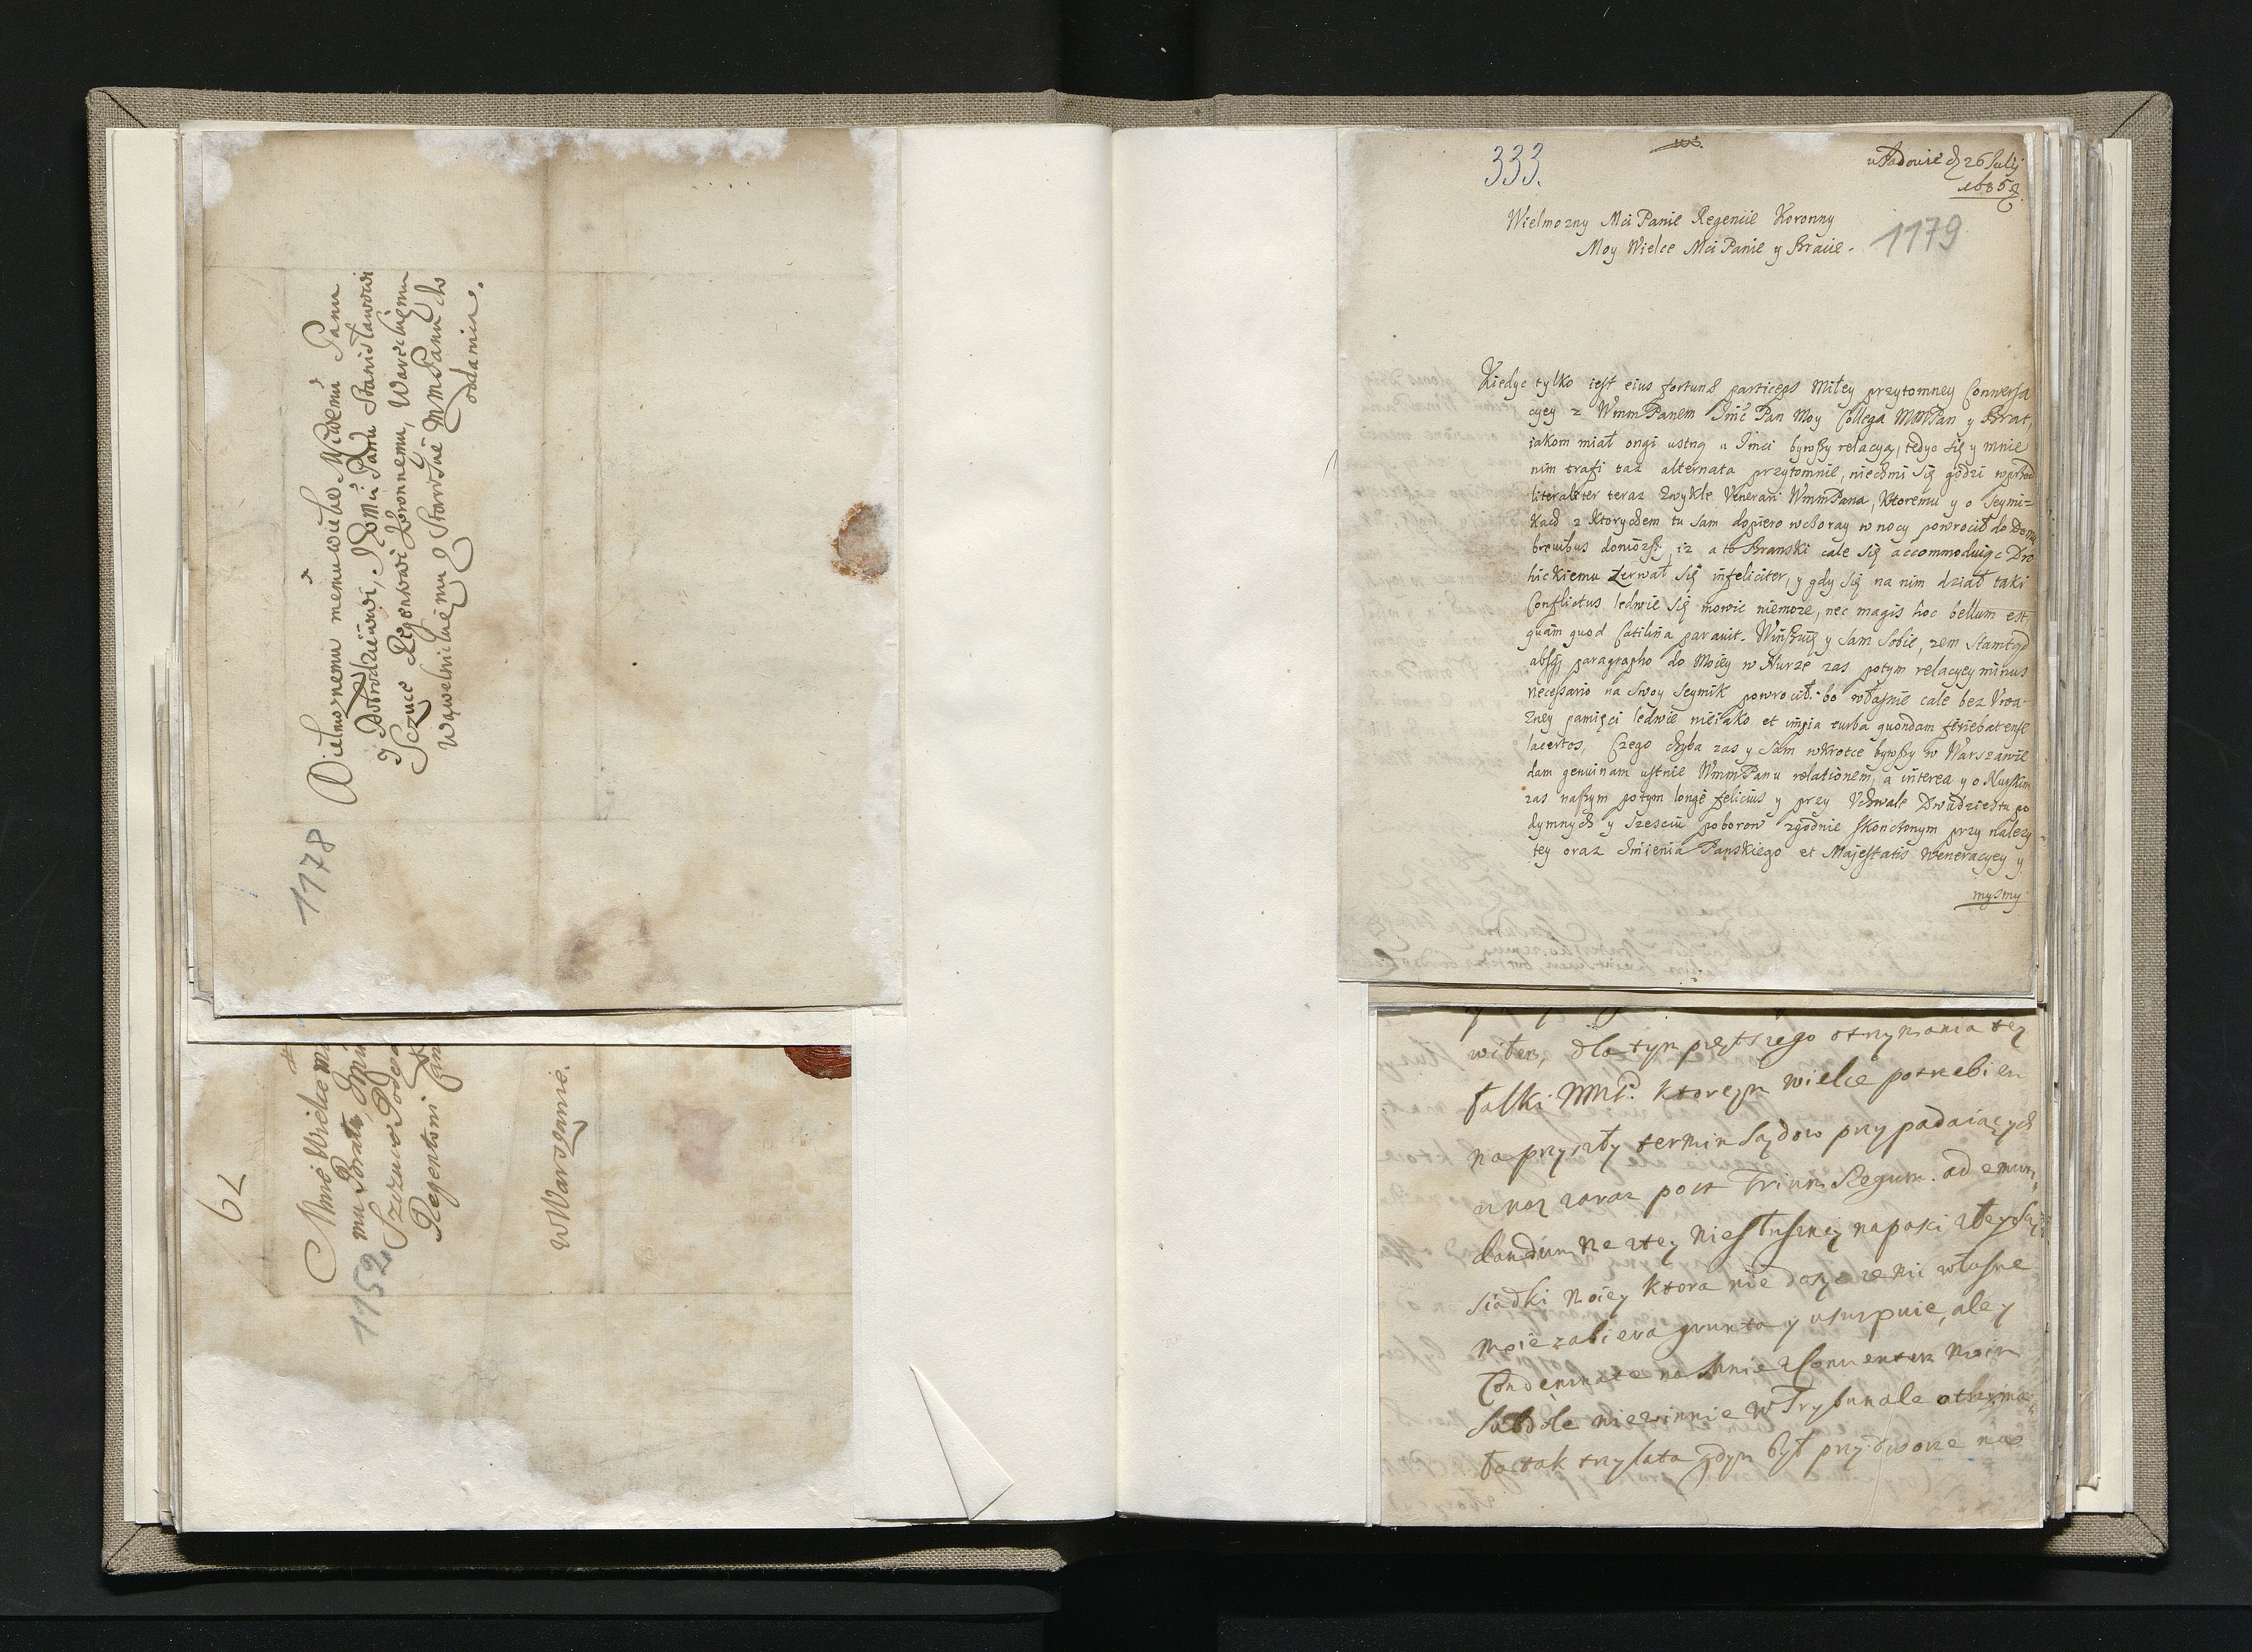 1178
Wielmoznemu memu wielce Mciwemu Panu
y Dobrodzieiowi, Jeomci Panu Stanisławowi
Sczuce Regentowi Koronnemu, Wareckiemu
Wąwelnickiemu Staroscie MMPanu do
oddania.
62
1152
Mnie Wielce M
mu Bratu, Jmci
Szczuce Podes
Regentowi
w Warszawie.
333.
w Radonie d 26 Julij
1685
1179
Wielmozny Mci Panie Regencie Koronny
Moy Wielce Mci Panie y Bracie.
Kiedyc tylko iest eius fortunæ particeps miłey przytomney Conversa
cyey z WmmPanem Jmć Pan Moy Collega MMPan y Brat,
iakom miał ongi ustną u Jmci bywszy relacyą, tedyc się y mnie
nim trafi taz alternata przytomnie, niechmi się godzi
literaliter teraz zwykle Venerari WmmPana, Ktoremu y o Seymi-
kach z Ktorychem tu sam dopiero wchoray w nocy powrocił do Domu
brevibus donioszę, iz a to Branski cale się accommoduiąc Dro
hickiemu zerwał się infeliciter, y gdy się na nim dział taki
Conflictus ledwie się mowic niemoze, nec magis hoc bellum est,
quam quod Catilina paravit. Winszuię y sam sobie, zem stamtąd
absq paragrapho do Moiey w Nurze zas potym relacyey minus
necessario na swoy Seymik powrocił: bo własnie cale bez Vwa
zney pamięci ledwie nieiako et impia turba quondam
lacertos, Czego chyba zas y sam wkrotce bywszy w Warszawie
dam genuinam ustnie WmmPanu relationem, a interea y o Nurskim
zas naszym potym longè felicius y przy Vchwale Dwudziestu po
dymnych y szesciu poborow zgodnie skonczonym przy nalezy
tey oraz Imienia Panskiego et Majestatis Weneracyey y
mysmy
witem, dla tym prętszego otrzymania tey
łaski WMP. ktoreym wielce potrzebien
na przyszły termin sądow przypadaiących
zaraz post Trium Regum. ad emun
dandum ze złey niesłuszney napasci złey Są
siadki moiey ktora nie dosyc ze mi własne
moie zabiera grunta y usurpuie, ale y
Condemnate na mnie z Conventem moim
subdole niewinnie w Trybunale otrzyma
ła tak trzy lata gdym był przy dworze na